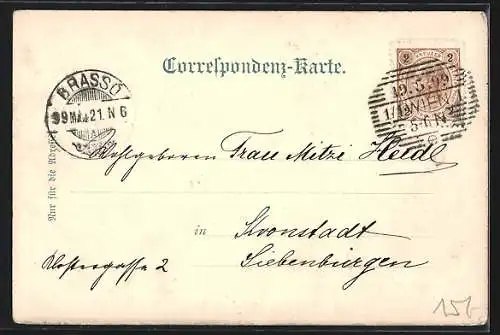 Correspondenz-Karte.
2 2
BRASSÓ
99 MAI 21. N 6
19.5.99
1/1 WIEN
5-6 N
Nur für die Adresse
Wohlgeboren Frau Mitzi Heidl
in Kronstadt
Klostergasse 2 Siebenbürgen
15.-